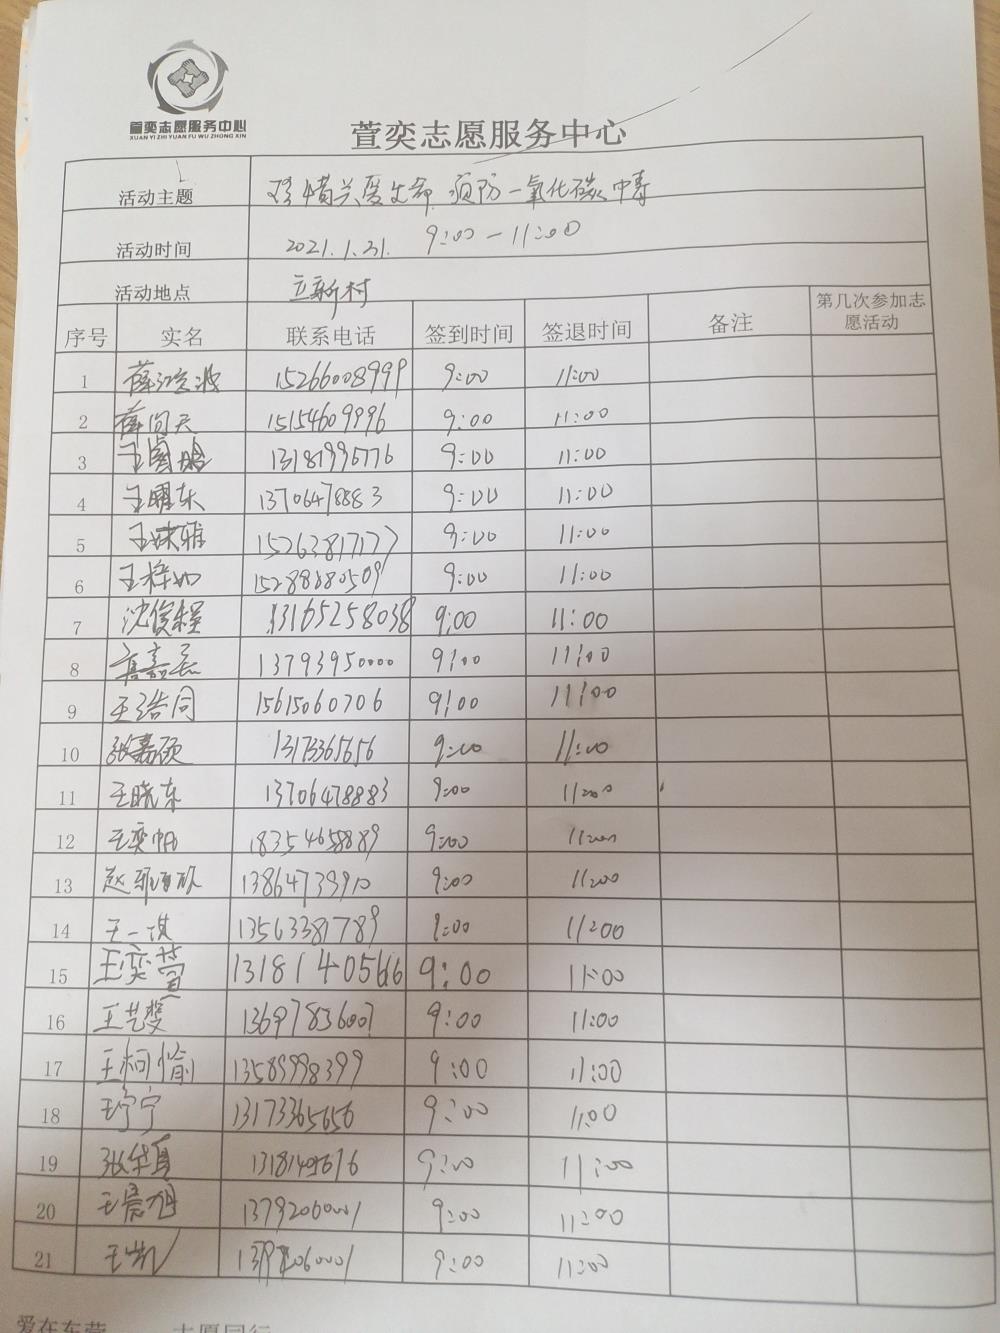 萱奕志愿服务中心
XUAN YI ZHI YUAN FU WU ZHONG XIN
萱奕志愿服务中心
活动主题 珍惜关爱生命 预防一氧化碳中毒
活动时间 2021.1.31. 9:00-11:00
活动地点 立新村
序号 实名 联系电话 签到时间 签退时间 备注 第几次参加志愿活动
1 15266008999 9:00 11:00
2 薛向天 15154609996 9:00 11:00
3 13181995776 9:00 11:00
4 王曜东 13706478883 9:00 11:00
5 15263817177 9:00 11:00
6 王梓如 15288680509 9:00 11:00
7 沈俊程 13165258038 9:00 11:00
8 13793950000 9:00 11:00
9 王浩同 15615060706 9:00 11:00
10 张嘉硕 13173365656 9:00 11:00
11 王晓东 13706478883 9:00 11:00
12 王奕帆 18354658889 9:00 11:00
13 13864739910 9:00 11:00
14 王一淇 13563381789 9:00 11:00
15 王奕萱 13181405666 9:00 11:00
16 王艺雯 13697836007 9:00 11:00
17 王柯愉 13589998399 9:00 11:00
18 王宁宁 13173365656 9:00 11:00
19 9:00 11:00
20 王晨旭 13792060001 9:00 11:00
21 王凯 13792060001 9:00 11:00
爱在东营 志愿同行